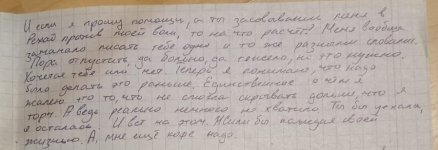 И если я прошу помощи, а ты засовываешь меня в
против моей воли, то на что расчёт? Меня вообще
заманало писать тебе одно и то же разными словами.
Пора отпустить, да больно, да тяжело, но это нужно.
Хочется тебе или нет. Теперь я понимаю что надо
было делать это раньше. Единственное о чём я
жалею это то, что не смогла скрывать дольше, что я
торч. А ведь реально немного не хватило. Ты бы уехала,
я осталась. И вот на этом. Жили бы каждая своей
жизнью. А, мне ещё надо.